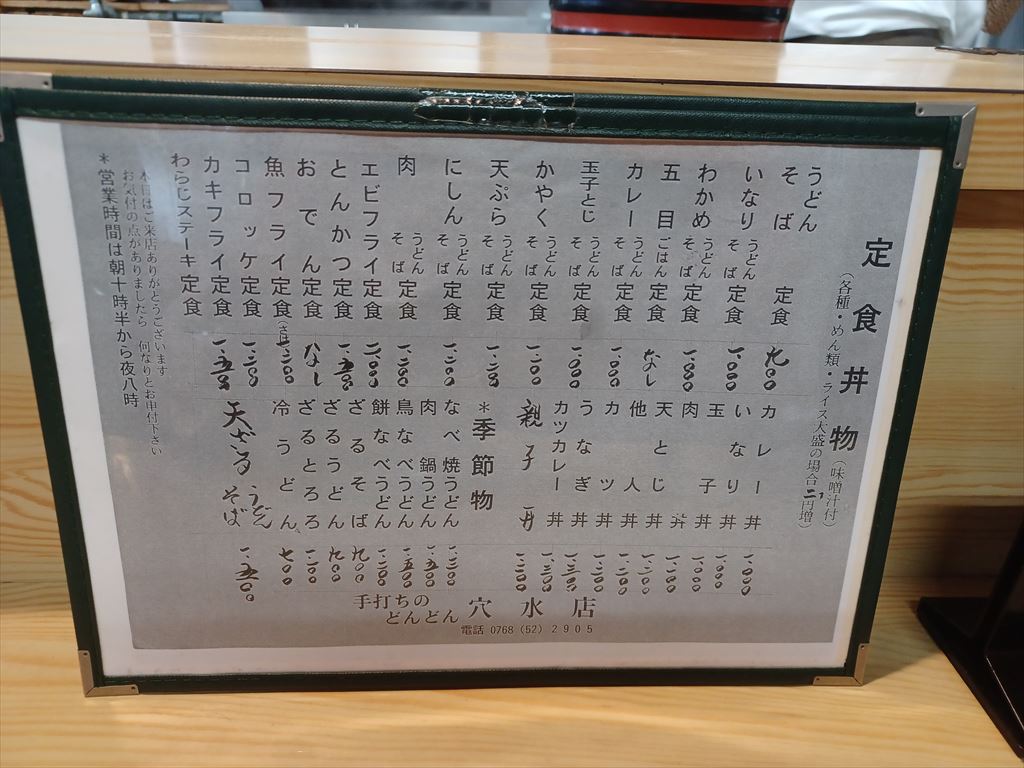 定食丼物
(各種・めん類・ライス大盛の場合 円増)
(味噌汁付)
うどん
そば 定食 九〇〇
いなり うどん そば 定食 一、〇〇〇
わかめ うどん そば 定食 一、〇〇〇
五目 ごはん 定食 なし
カレー うどん そば 定食 一、〇〇〇
玉子とじ うどん そば 定食 一、〇〇〇
かやく うどん そば 定食
天ぷら うどん そば 定食
にしん うどん そば 定食
肉 うどん そば 定食
エビフライ定食
とんかつ定食 一、五〇〇
おでん定食 なし
魚フライ定食
コロッケ定食
カキフライ定食 一、五〇〇
わらじステーキ定食
カレー丼 一、〇〇〇
いなり丼 一、〇〇〇
玉子丼 一、〇〇〇
肉丼
天とじ丼
他人丼
カツ丼
うなぎ丼
カツカレー丼
親子丼
*季節物
なべ焼うどん
肉鍋うどん 一、五〇〇
鳥なべうどん 一、五〇〇
餅なべうどん
ざるそば 九〇〇
ざるうどん 九〇〇
ざるとろろ
冷うどん 七〇〇
天ざる うどん そば 一、五〇〇
本日はご来店ありがとうございます
お気付の点がありましたら 何なりとお申付下さい
*営業時間は朝十時半から夜八時
手打ちの
どんどん 穴水店
電話 0768 (52) 2905